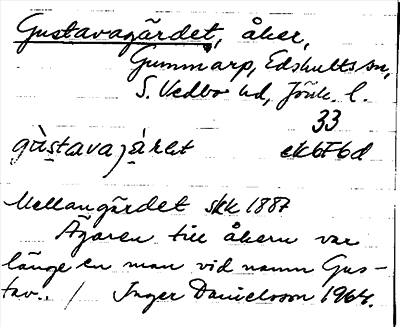 Gustavagärdet, åker,
Gummarp, Edshults sn,
S. Vedbo hd, Jönk. l.
33
gùstavajä́ret ek676d
Mellangärdet skk 1887
Ägaren till åkern var
länge en man vid namn Gus-
tav.. / Inger Danielsson 1964.